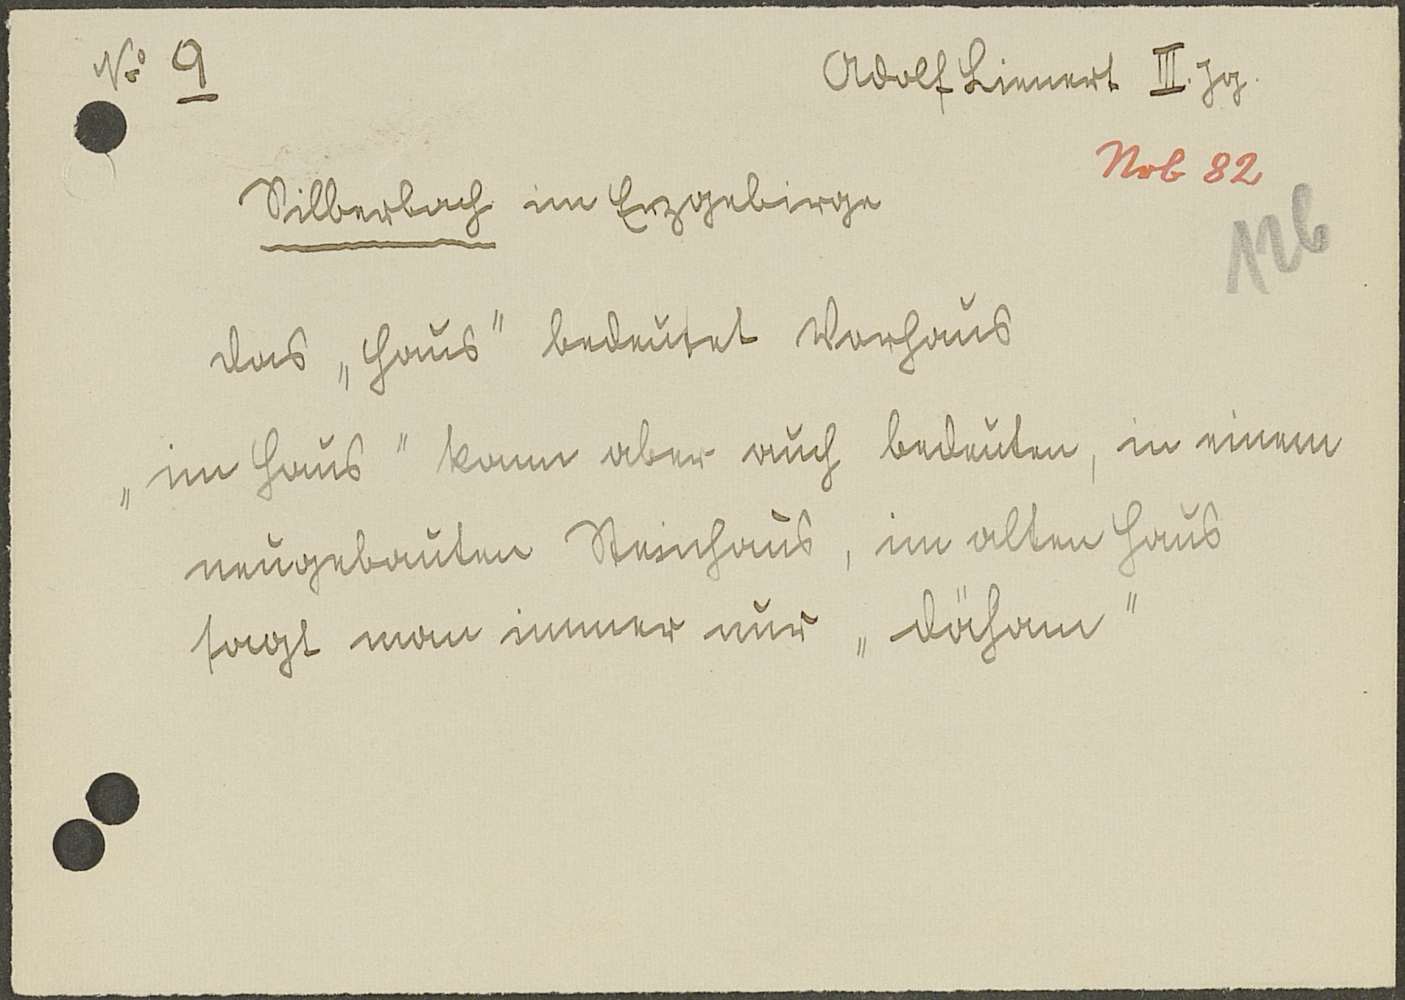 No 9
Adolf Lienert III. Jg.
Nrb 82
12b
Silberbach im Erzgebirge
das „Haus" bedeutet Vorhaus
„im Haus" kann aber auch bedeuten, in einem
neugebauten Steinhaus, im alten Haus
sagt man immer nur „däham"